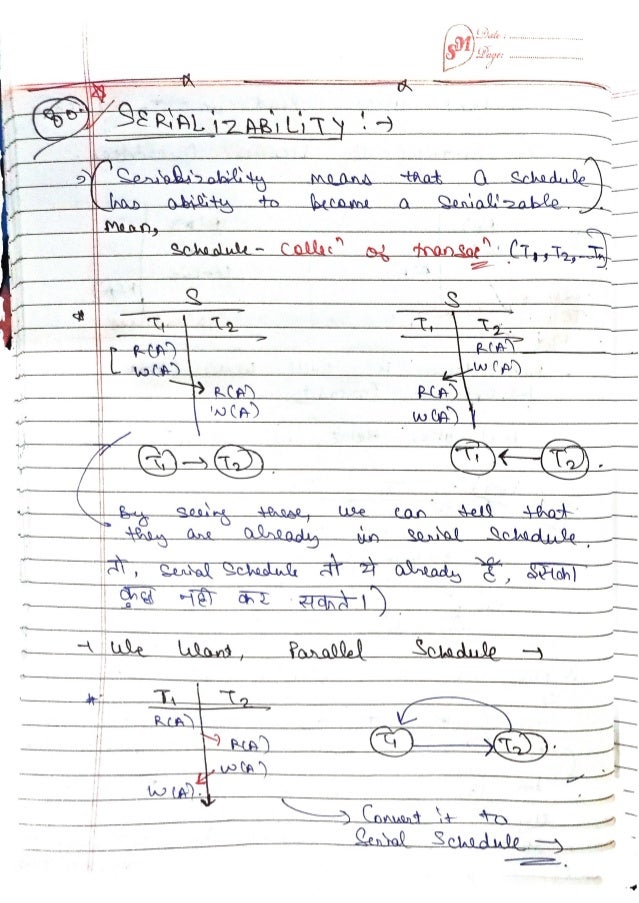 SM Date:
Page:
80. SERIALIZABILITY :→
→ (Serializability means that a schedule
has ability to become a Serializable.)
Mean,
Schedule - Collecⁿ of transacⁿ (T₁, T₂, ...Tn)
S S
T₁ | T₂ T₁ | T₂
R(A) R(A)
W(A) W(A)
R(A) R(A)
W(A) W(A)
T₁ → T₂ T₁ ← T₂
By seeing these, we can tell that
they are already in serial Schedule.
तो, Serial Schedule तो ये already है, इसका
कुछ नही कर सकते।)
→ We Want, Parallel Schedule →
T₁ | T₂
R(A)
R(A) T₁ T₂
W(A)
W(A)
→ Convert it to
Serial Schedule →